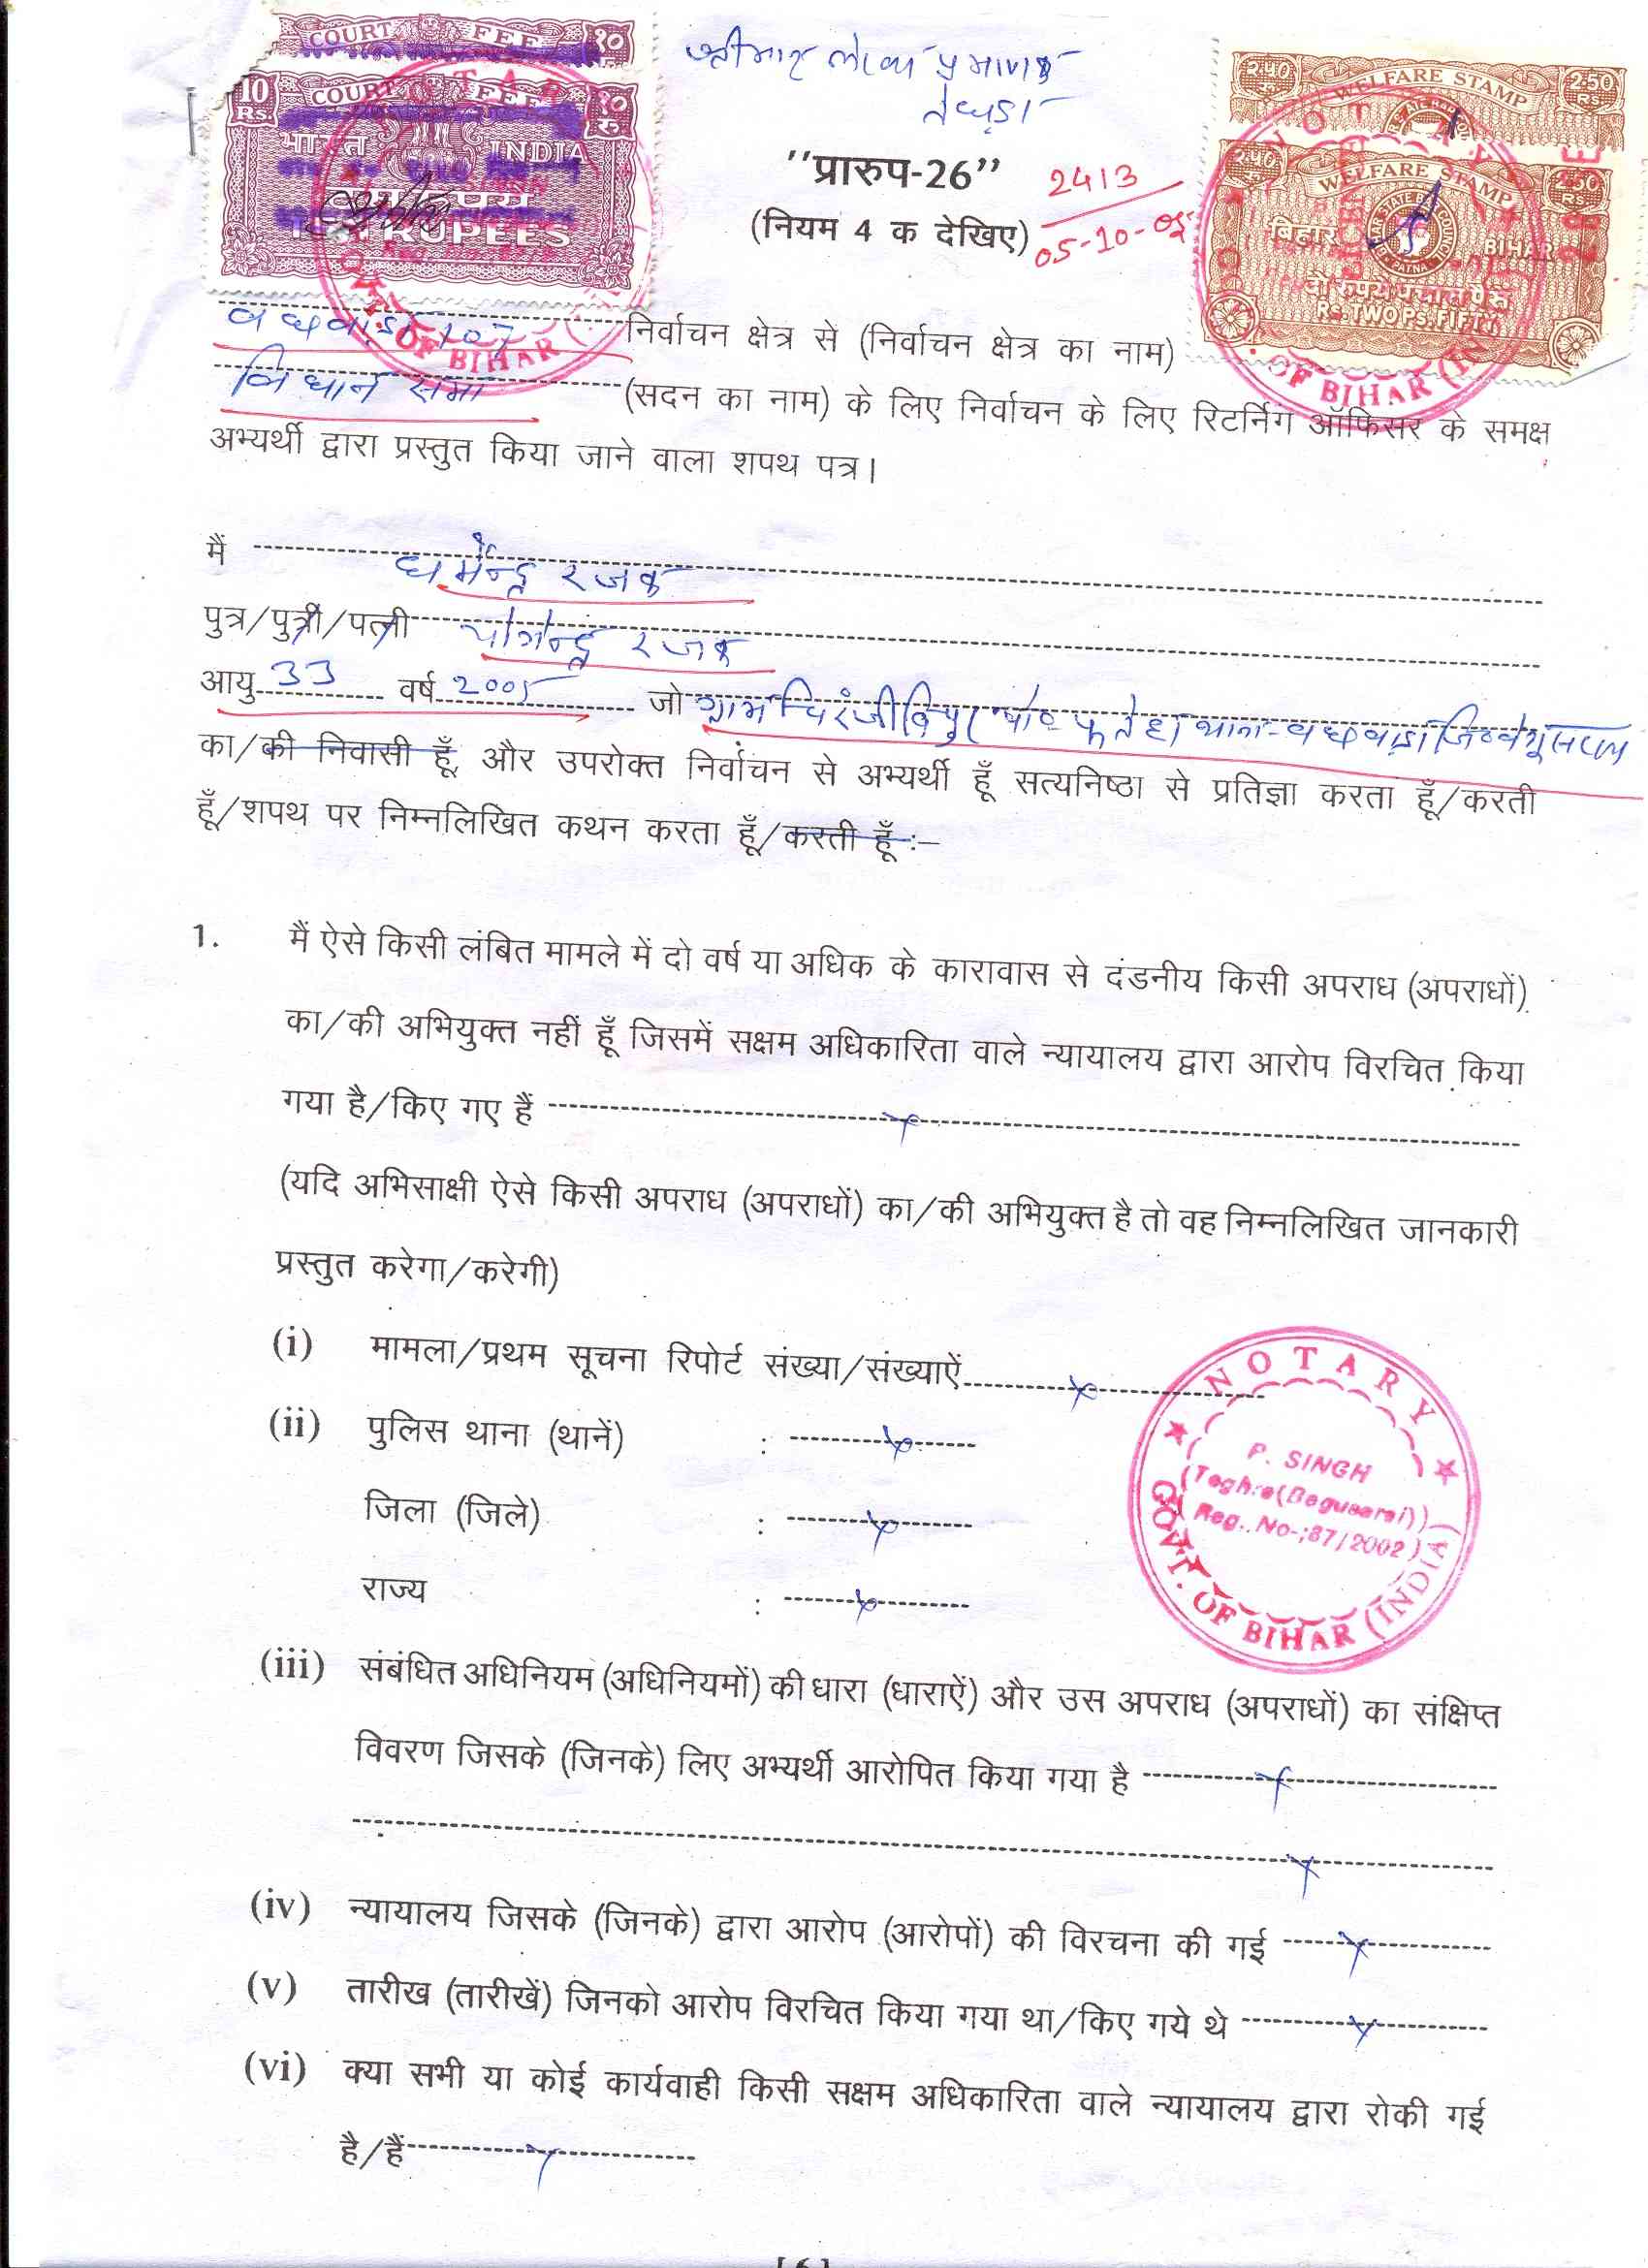 COURT FEE १०
10 Rs. COURT FEE १० रु.
भारत INDIA
RUPEES
श्रीमान लेख्य प्रमाणक
तेघड़ा
WELFARE STAMP 2.50 RS
२.५० WELFARE STAMP 2.50 RS
बिहार BIHAR
दो रुपये पचास पैसे
Rs. TWO PS. FIFTY
"प्रारुप-26"
(नियम 4 क देखिए)
2413
05-10-05
वछवाड़ा 107 निर्वाचन क्षेत्र से (निर्वाचन क्षेत्र का नाम)
विधान सभा (सदन का नाम) के लिए निर्वाचन के लिए रिटर्निग ऑफिसर के समक्ष
अभ्यर्थी द्वारा प्रस्तुत किया जाने वाला शपथ पत्र।
मैं धर्मेन्द्र रजक
पुत्र/पुत्री/पत्नी योगेन्द्र रजक
आयु 33 वर्ष 2005 जो ग्राम चिरंजीविपुर पो०- फतेहा थाना-वछवाड़ा जि० बेगूसराय
का/की निवासी हूँ, और उपरोक्त निर्वाचन से अभ्यर्थी हूँ सत्यनिष्ठा से प्रतिज्ञा करता हूँ/करती
हूँ/शपथ पर निम्नलिखित कथन करता हूँ/करती हूँ :–
1. मैं ऐसे किसी लंबित मामले में दो वर्ष या अधिक के कारावास से दंडनीय किसी अपराध (अपराधों)
का/की अभियुक्त नहीं हूँ जिसमें सक्षम अधिकारिता वाले न्यायालय द्वारा आरोप विरचित किया
गया है/किए गए हैं ---- x ----
(यदि अभिसाक्षी ऐसे किसी अपराध (अपराधों) का/की अभियुक्त है तो वह निम्नलिखित जानकारी
प्रस्तुत करेगा/करेगी)
(i) मामला/प्रथम सूचना रिपोर्ट संख्या/संख्याऐं ---- x ----
(ii) पुलिस थाना (थानें) : ---- x ----
जिला (जिले) : ---- x ----
राज्य : ---- x ----
NOTARY
P. SINGH
Teghra (Begusarai)
Reg. No-;87/2002
GOVT. OF BIHAR (INDIA)
(iii) संबंधित अधिनियम (अधिनियमों) की धारा (धाराऐं) और उस अपराध (अपराधों) का संक्षिप्त
विवरण जिसके (जिनके) लिए अभ्यर्थी आरोपित किया गया है ---- x ----
---- x ----
(iv) न्यायालय जिसके (जिनके) द्वारा आरोप (आरोपों) की विरचना की गई ---- x ----
(v) तारीख (तारीखें) जिनको आरोप विरचित किया गया था/किए गये थे ---- x ----
(vi) क्या सभी या कोई कार्यवाही किसी सक्षम अधिकारिता वाले न्यायालय द्वारा रोकी गई
है/हैं ---- x ----
[ 6 ]